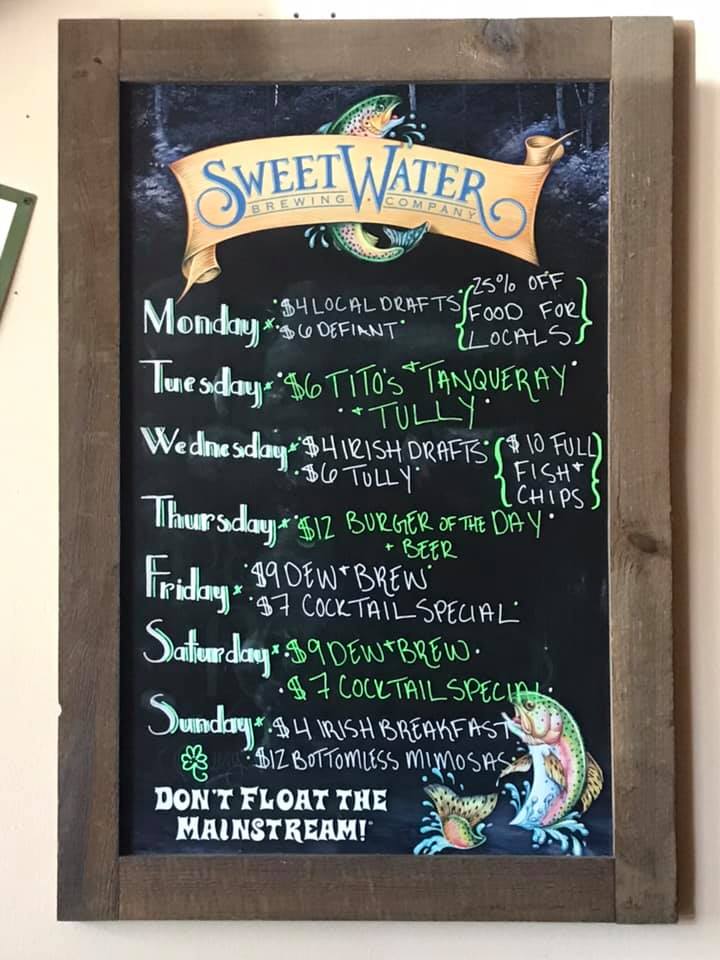 SWEETWATER
BREWING COMPANY
Monday • $4 LOCAL DRAFTS • {25% OFF
• $6 DEFIANT • FOOD FOR
LOCALS}
Tuesday • $6 TITO'S + TANQUERAY •
• + TULLY •
Wednesday • $4 IRISH DRAFTS • {$10 FULL
• $6 TULLY • FISH +
CHIPS}
Thursday • $12 BURGER OF THE DAY •
+ BEER
Friday • $9 DEW + BREW •
• $7 COCKTAIL SPECIAL •
Saturday • $9 DEW + BREW •
• $7 COCKTAIL SPECIAL •
Sunday • $4 IRISH BREAKFAST
• $12 BOTTOMLESS MIMOSAS •
DON'T FLOAT THE
MAINSTREAM!